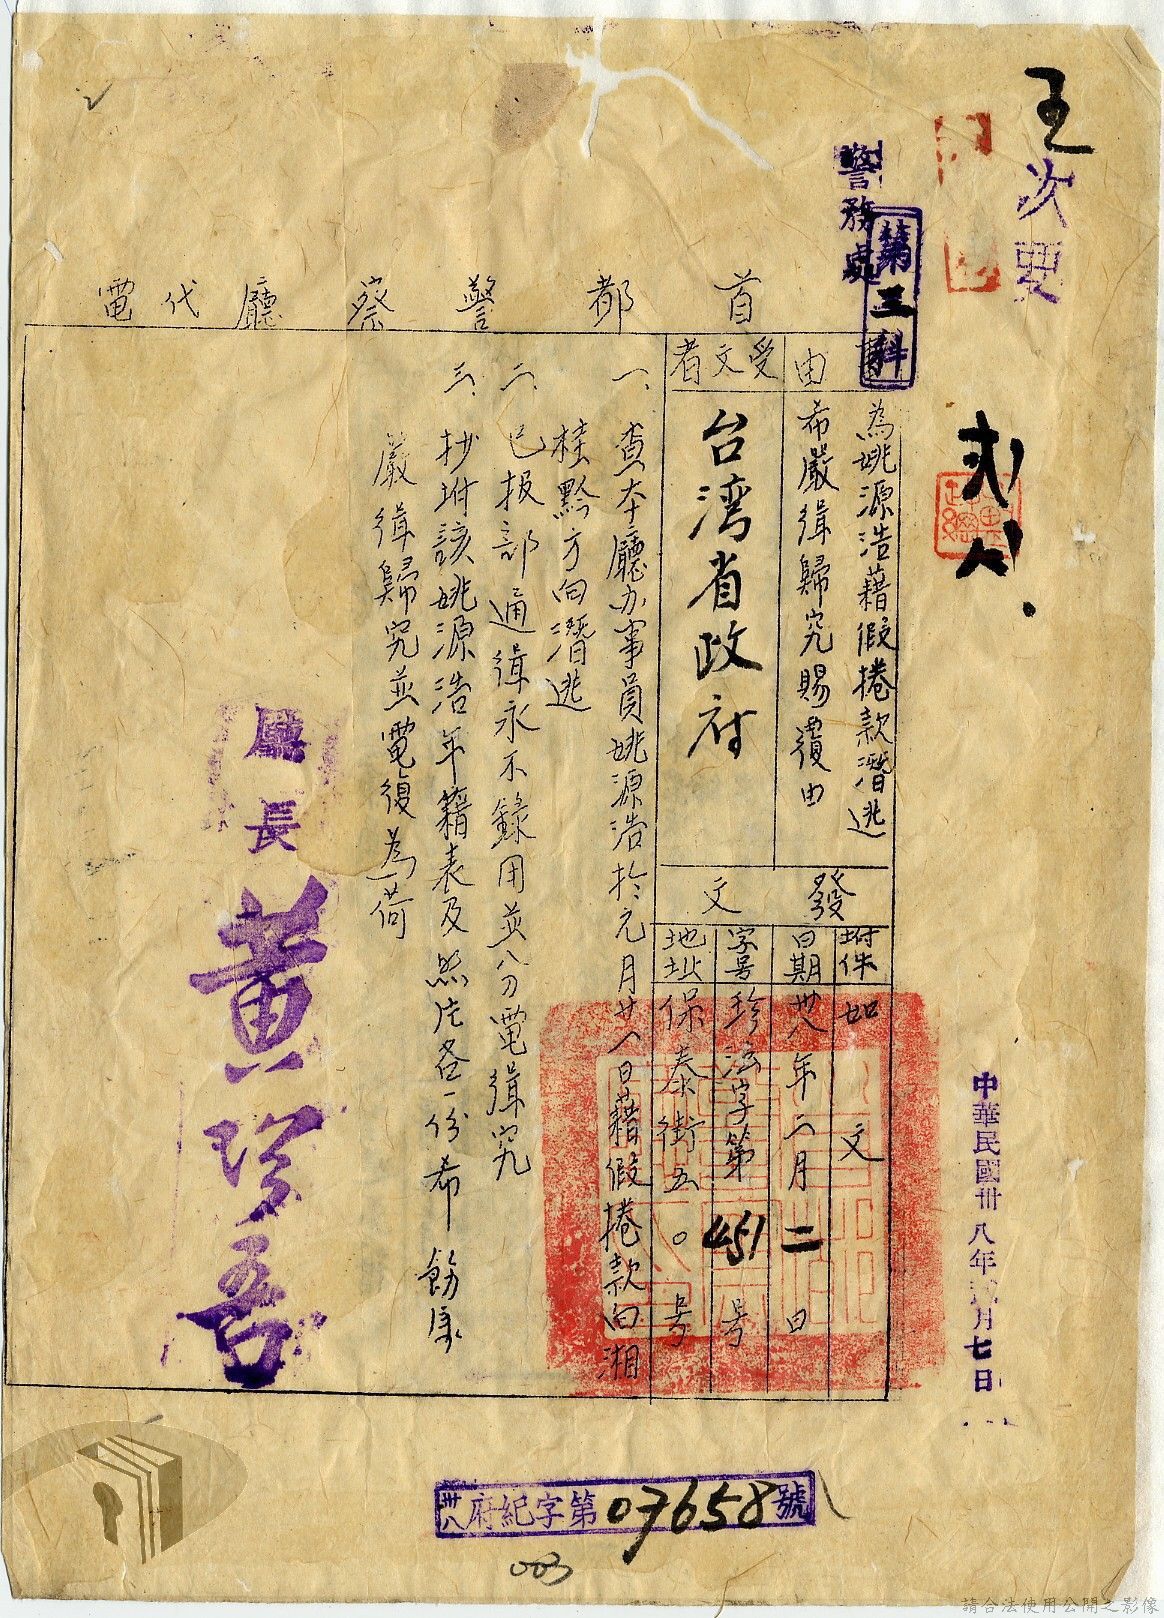 王
次要
警務處
第三科
首都警察廳代電
由
為姚源浩藉假捲款潛逃
希嚴緝歸究賜覆由
受文者
台湾省政府
發文
坿件
如文
日期
卅八年二月二日
字号
珍法字第451号
地址
保泰街五〇号
一、查本廳办事員姚源浩於元月廿八日藉假捲款向湘
桂黔方向潛逃
二、已报部通緝永不錄用並分電緝究
三、抄坿該姚源浩年籍表及照片各一份希飭属
嚴緝歸究並電復為荷
廳長黃珍吾
中華民國卅八年貳月七日
卅八府紀字第07658號
003
請合法使用公開之影像